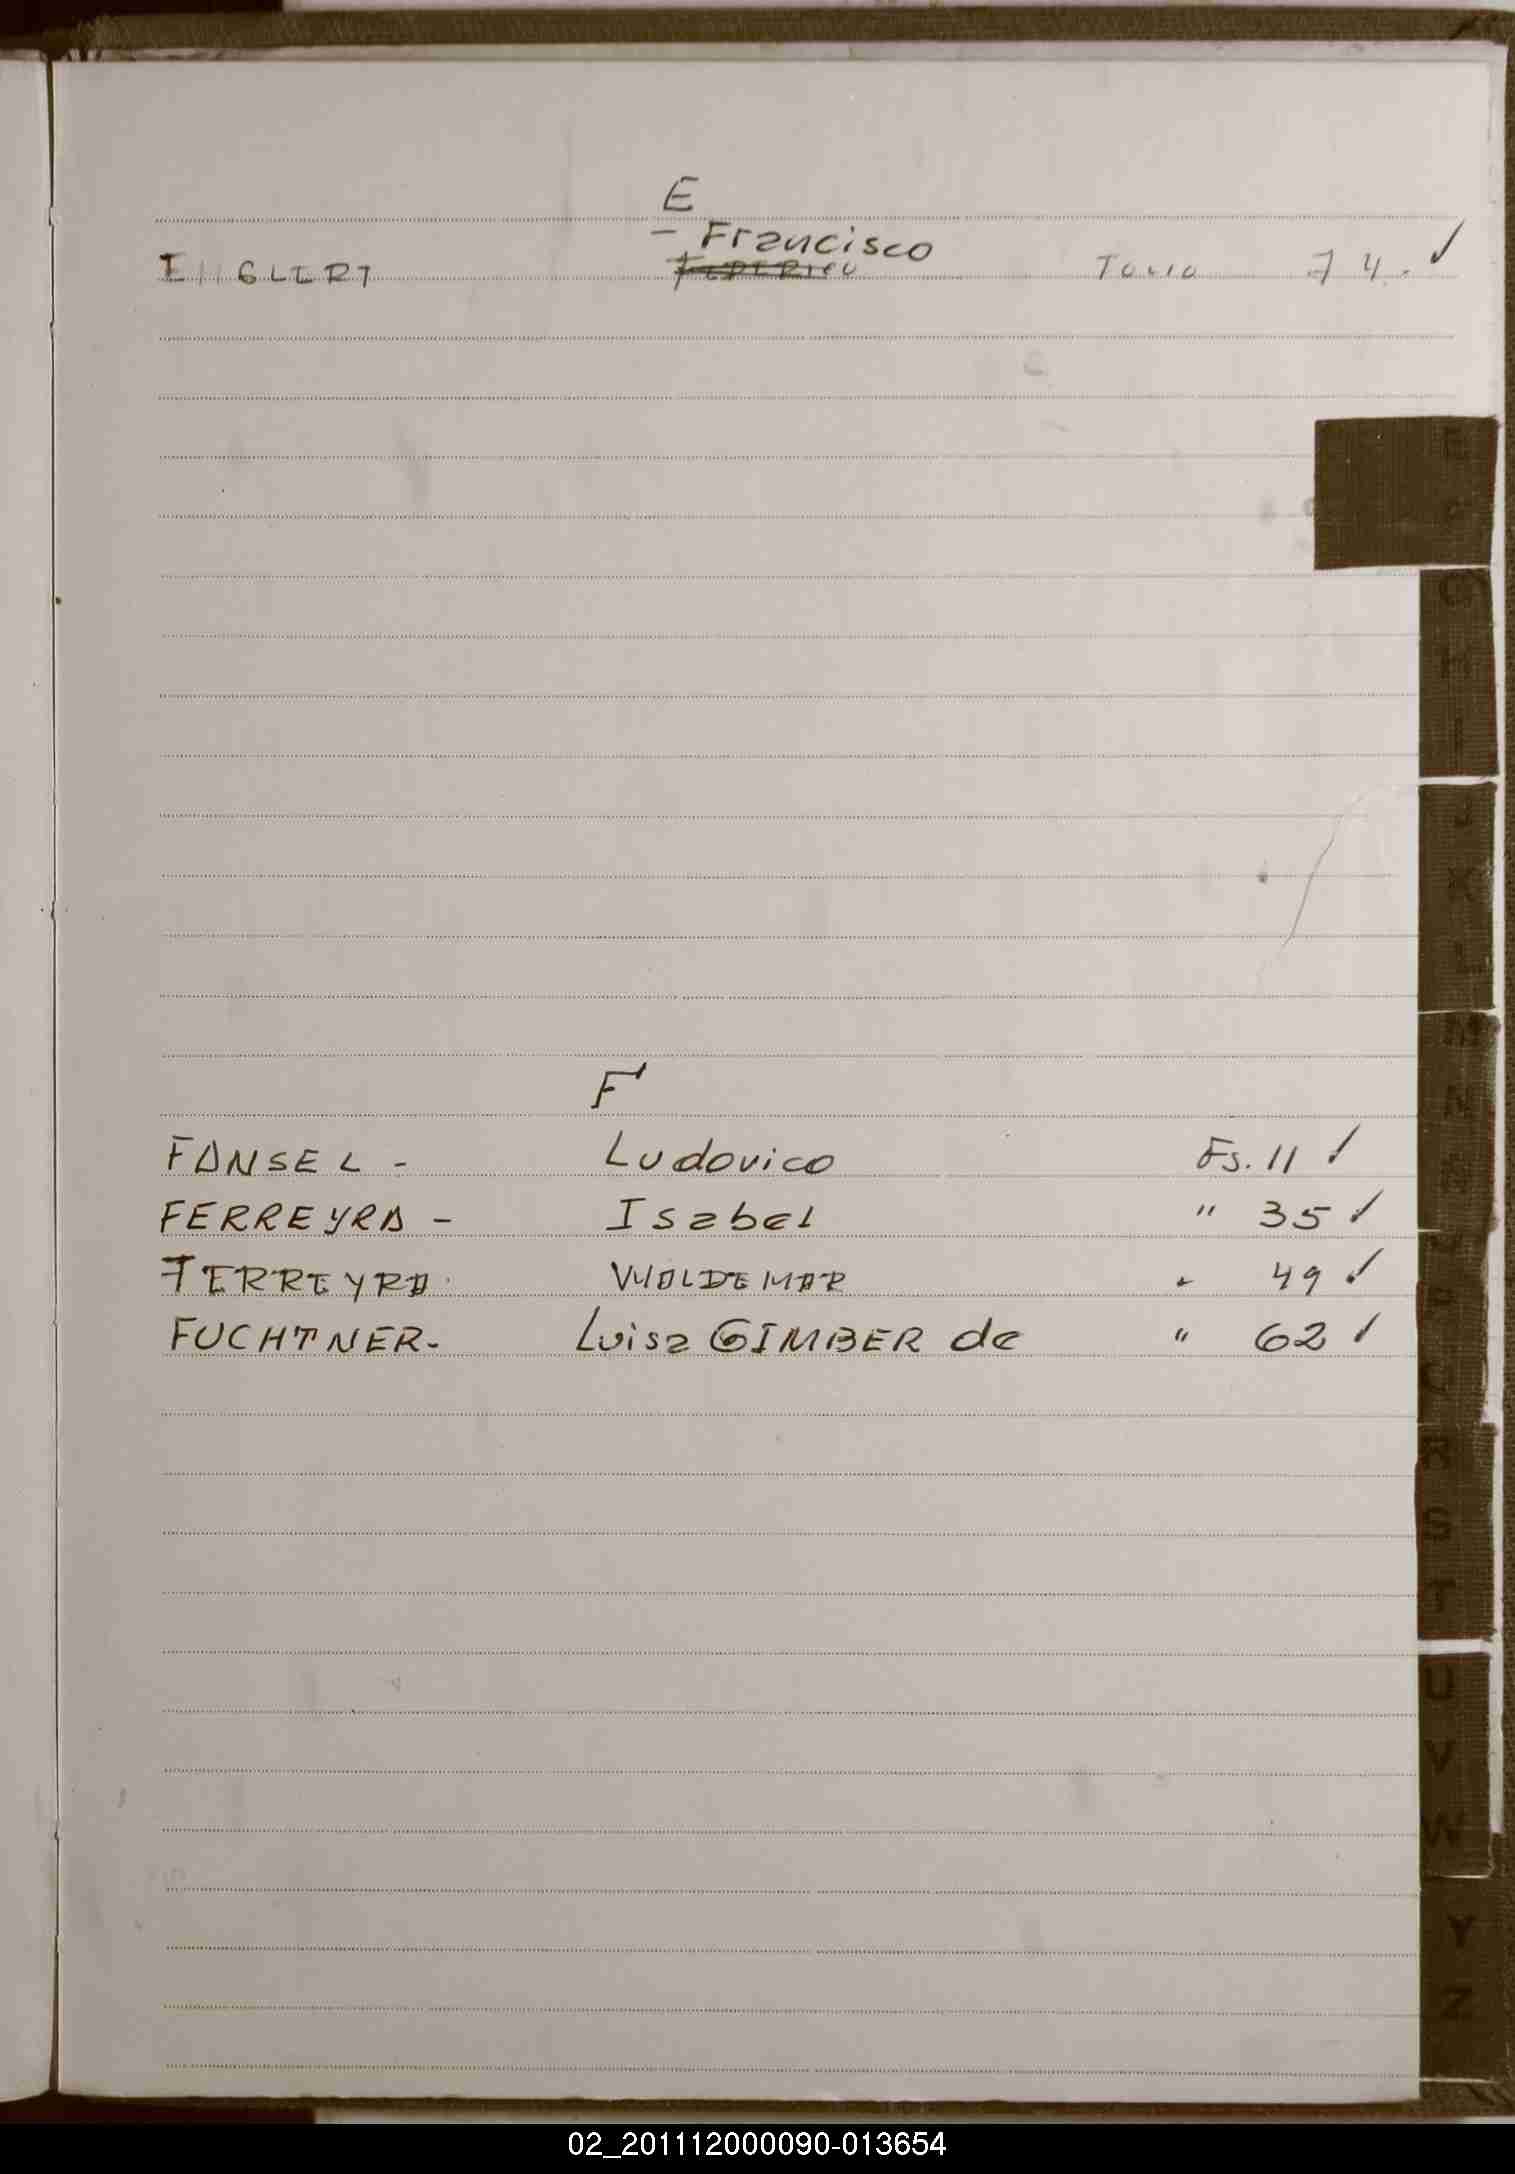 E
- Francisco
ENGLERT FEDERICO Folio 74. ✓
F
FANSEL - Ludovico Fs. 11 ✓
FERREYRA - Isabel " 35 ✓
FERREYRA. WOLDEMAR " 49 ✓
FUCHTNER. Luisa GIMBER de " 62 ✓
E
F
G
H
I
J
K
L
M
N
R
S
T
U
V
W
Y
Z
02_201112000090-013654